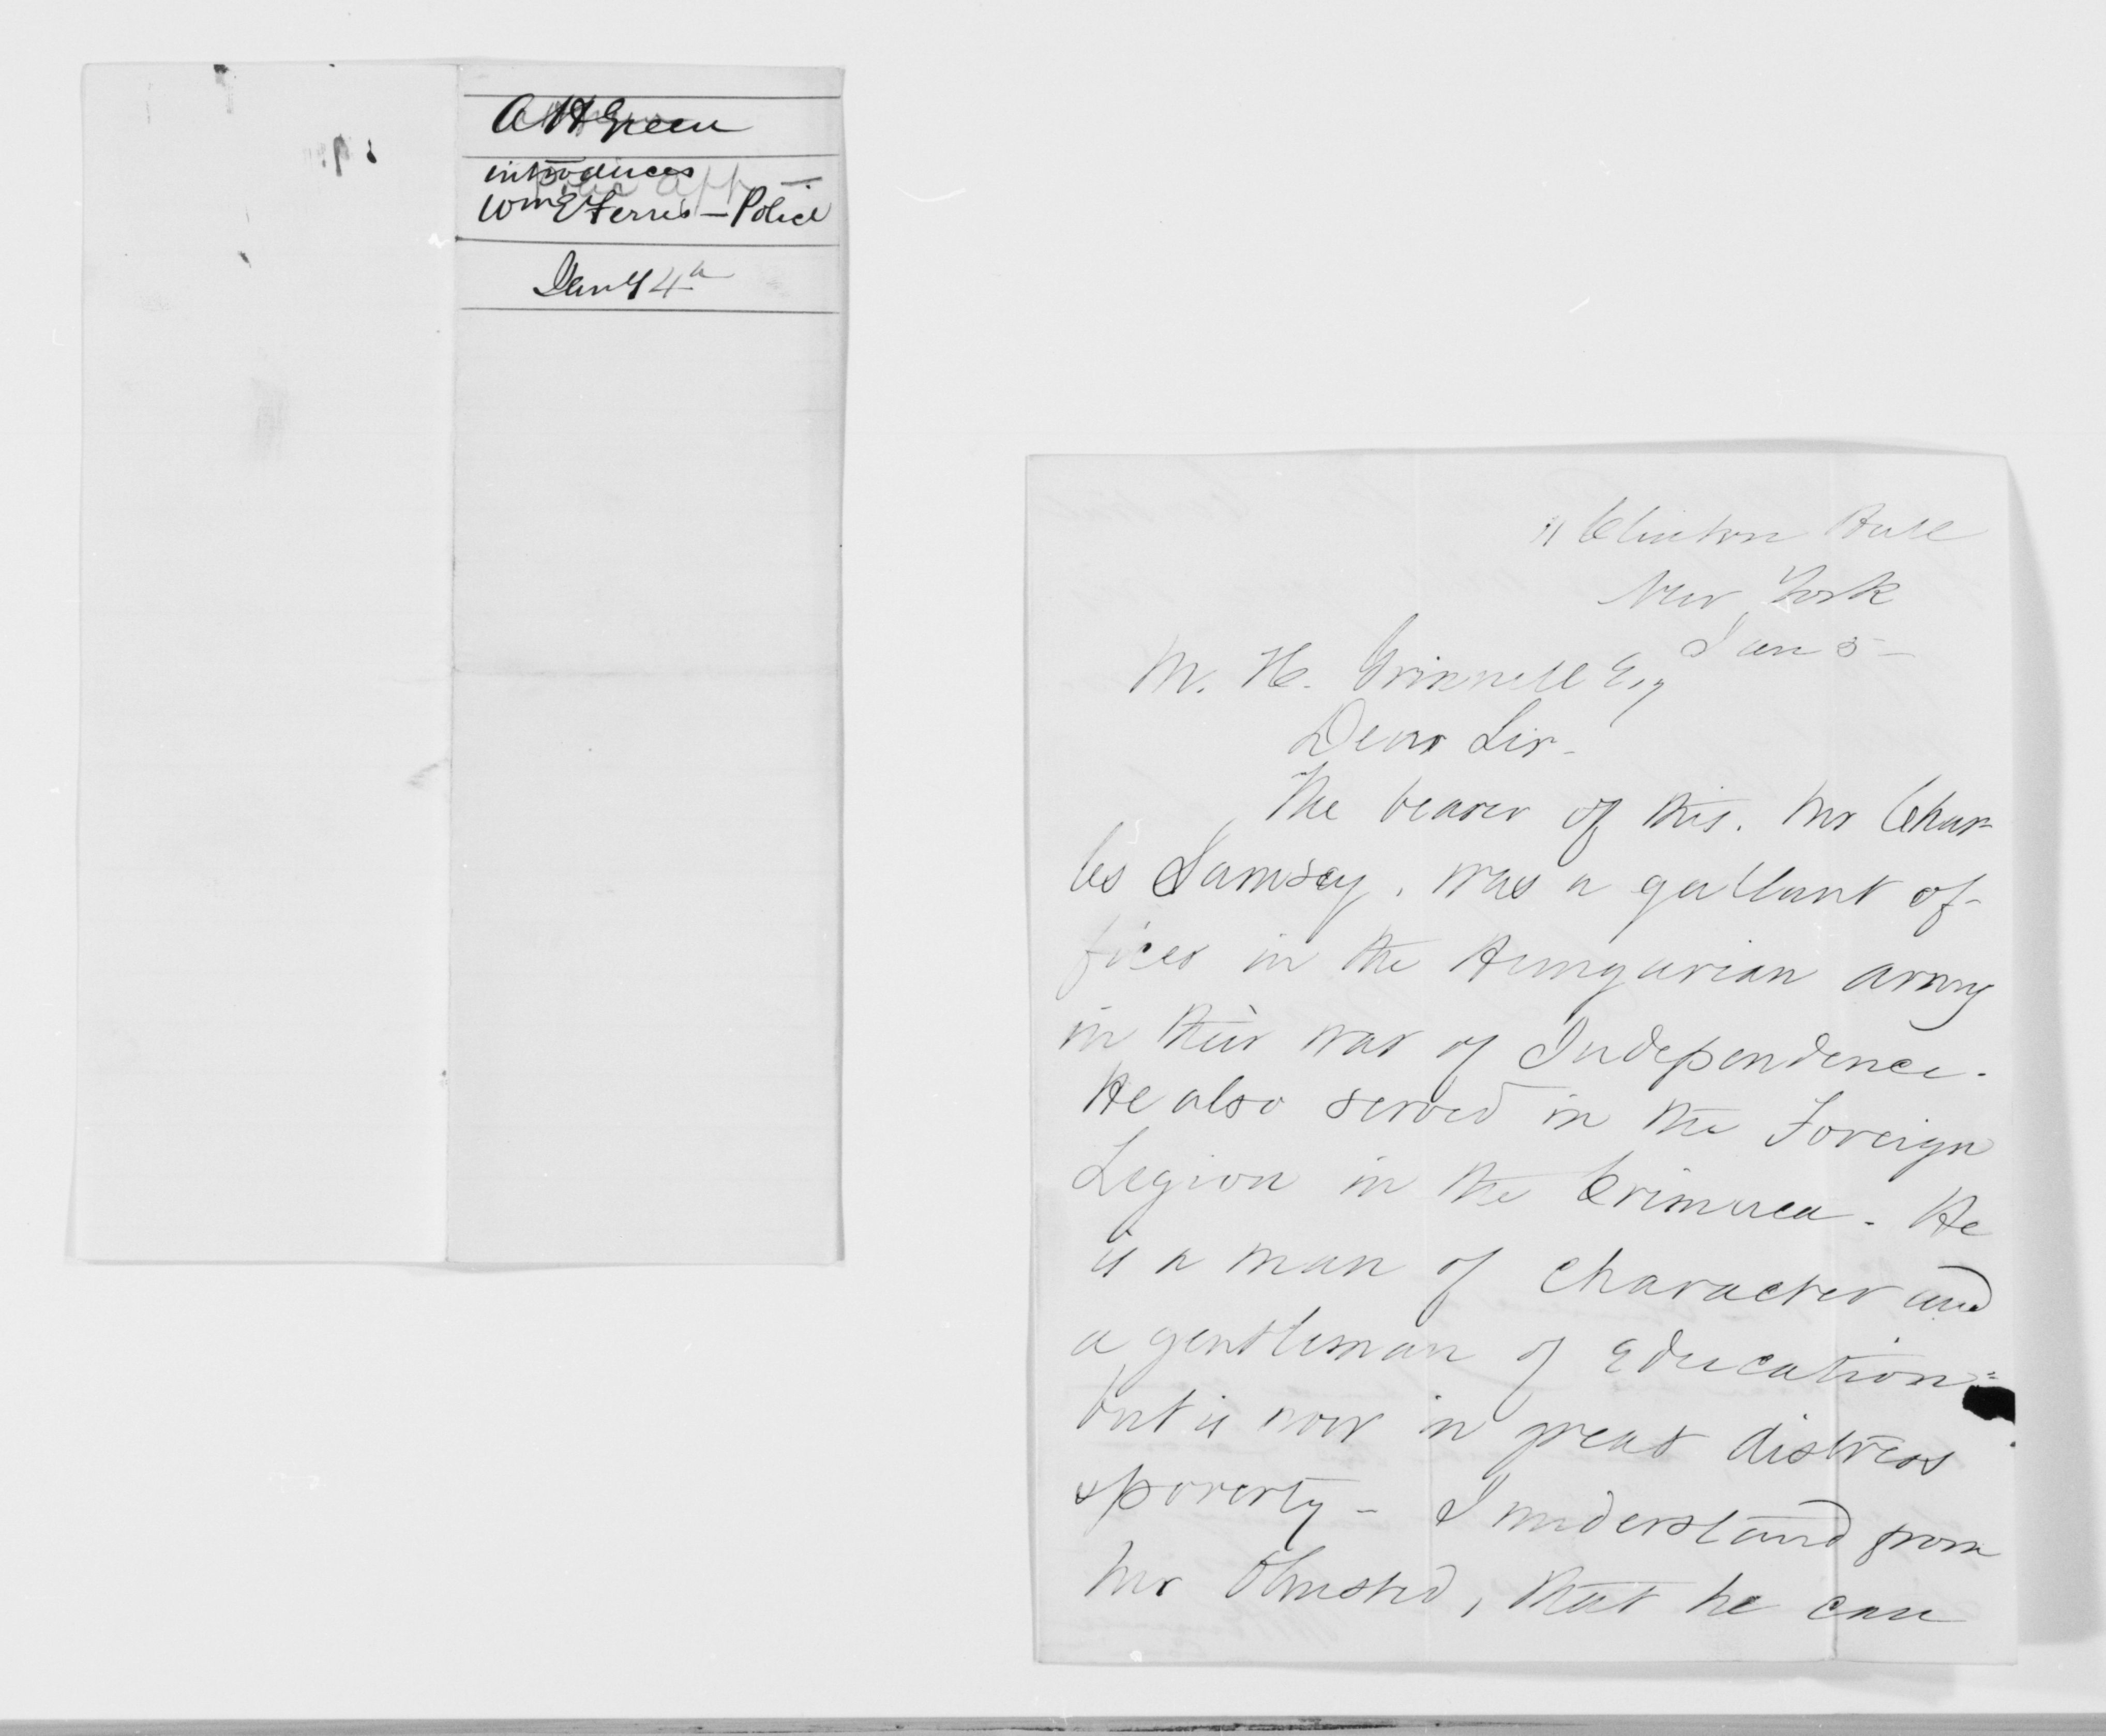 A H Green
introduces
Wm E Ferris - Police
Jany 4th
11 Clinton Hall
New York
Jan 5 -
M. H. Grinnell Esq
Dear Sir -
The bearer of this. Mr Char-
les Samsey, was a gallant of-
ficer in the Hungarian army
in their war of Independence.
He also served in the Foreign
Legion in the Crimea. He
is a man of character and
a gentleman of education:
but is now in great distress
& poverty - I understand from
Mr Olmsted, that he can